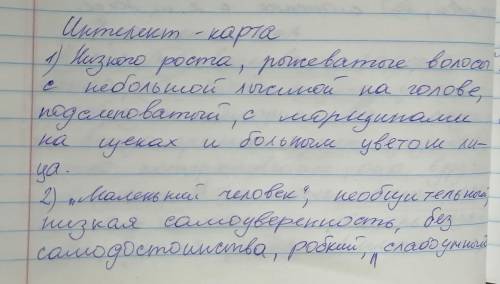 Интелект - карта
1) Низкого роста, рыжеватые волосы
с небольшой лысиной на голове,
подслеповатый, с морщинами
на щеках и больным цветом ли-
ца.
2) „Маленький человек“, необщительный,
низкая самоуверенность, без
самодостоинства, робкий, „слабоумный